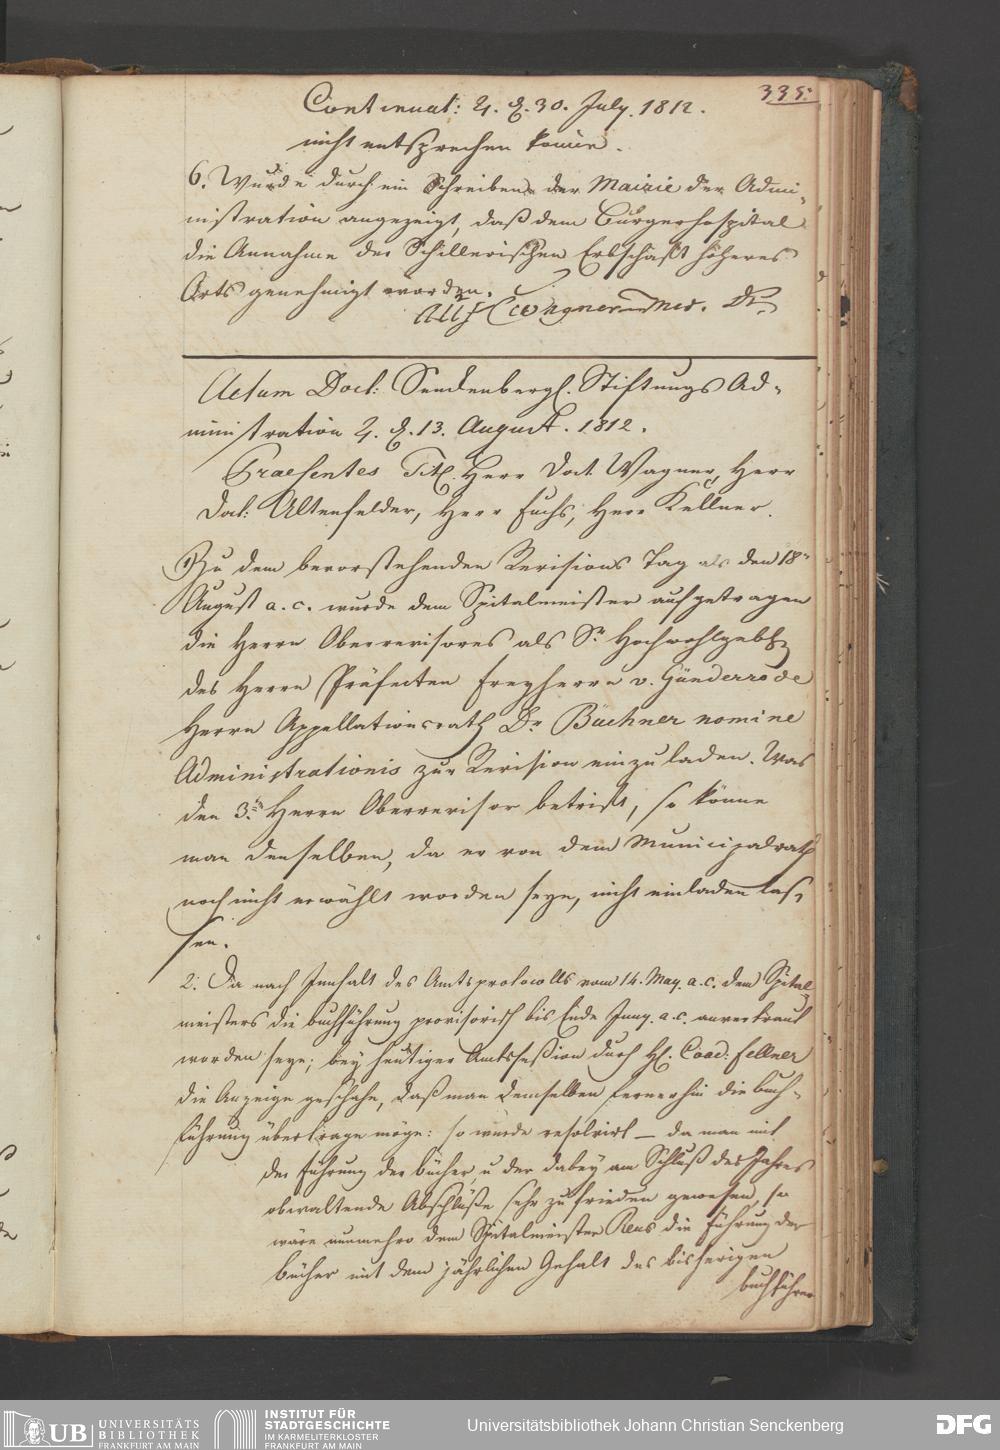 335.
Continuat: ♃. d. 30. July. 1812.
nicht entsprechen könne.
6. Wurde durch ein Schreiben der Mairie der Admi-
nistration angezeigt, daß dem Bürgerhospital
die Annahme der Schillerischen Erbschaft höheres
Orts genehmigt worden.
Dr.
Actum Doct: Senckenbergl. Stiftungs Ad-
ministration ♃. d. 13. August. 1812.
Praesentes Titl. Herr Doct. Wagner, Herr
Doct: Altenfelder, Herr Fuchs, Herr Kellner.
Zu dem bevorstehenden Revisions Tag als den 18n
August a. c. wurde dem Spitalmeister aufgetragen
die Herrn Oberrevisores als Sr. Hochwohlgeb.
des Herrn Präfecten Freyherrn v. Günderrode
Herrn Appellationsrath Dr. Büchner nomine
Administrationis zur Revision einzuladen. Was
den 3ten Herrn Oberrevisor betrift, so könne
man denselben, da er von dem Municipalrath
noch nicht erwählt worden seye, nicht einladen las-
sen.
2. Da nach Innhalt des Amtsprotocolls vom 14. May. a. c. dem Spital-
meisters die Buchführung provisorisch bis Ende Juny. a. c. anvertraut
worden seye; bey heutiger Amtssession durch H. Coad: Kellner
die Anzeige geschahe, daß man demselben fernerhin die Buch-
führung übertrage möge: so wurde resolvirt — da man mit
der Führung der Bücher u der dabey am Schluß des Jahres
obwaltende Abschlüße sehr zufrieden gewesen, so
wäre nunmehro dem Spitalmeister Reus die Führung der
Bücher mit dem jährlichen Gehalt des bisherigen
Buchführer
UB UNIVERSITÄTS
BIBLIOTHEK
FRANKFURT AM MAIN
INSTITUT FÜR
STADTGESCHICHTE
IM KARMELITERKLOSTER
FRANKFURT AM MAIN
Universitätsbibliothek Johann Christian Senckenberg
DFG